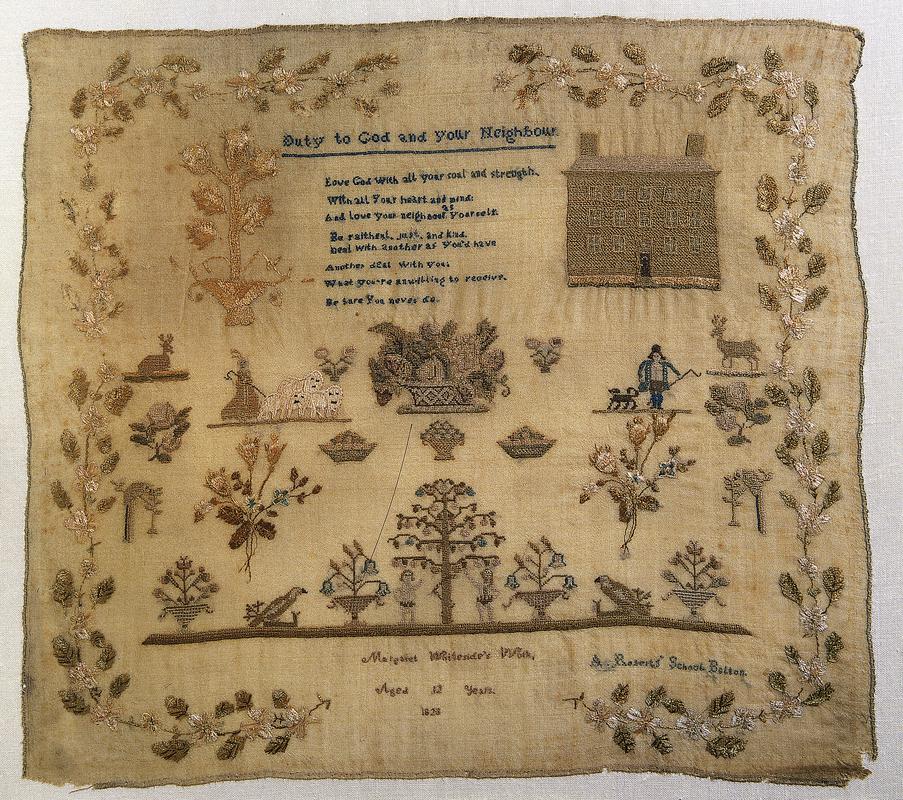 Duty to God and your Neighbour
Love God with all your soul and strength,
With all Your heart and mind:
And love your neighbour as Yourself.
Be faithful, just, and kind.
Deal with another as You'd have
Another deal with You:
What you're unwilling to receive.
Be sure You never do.
Margaret Work,
Aged 12 Years.
1828
Roberts' School Bolton.